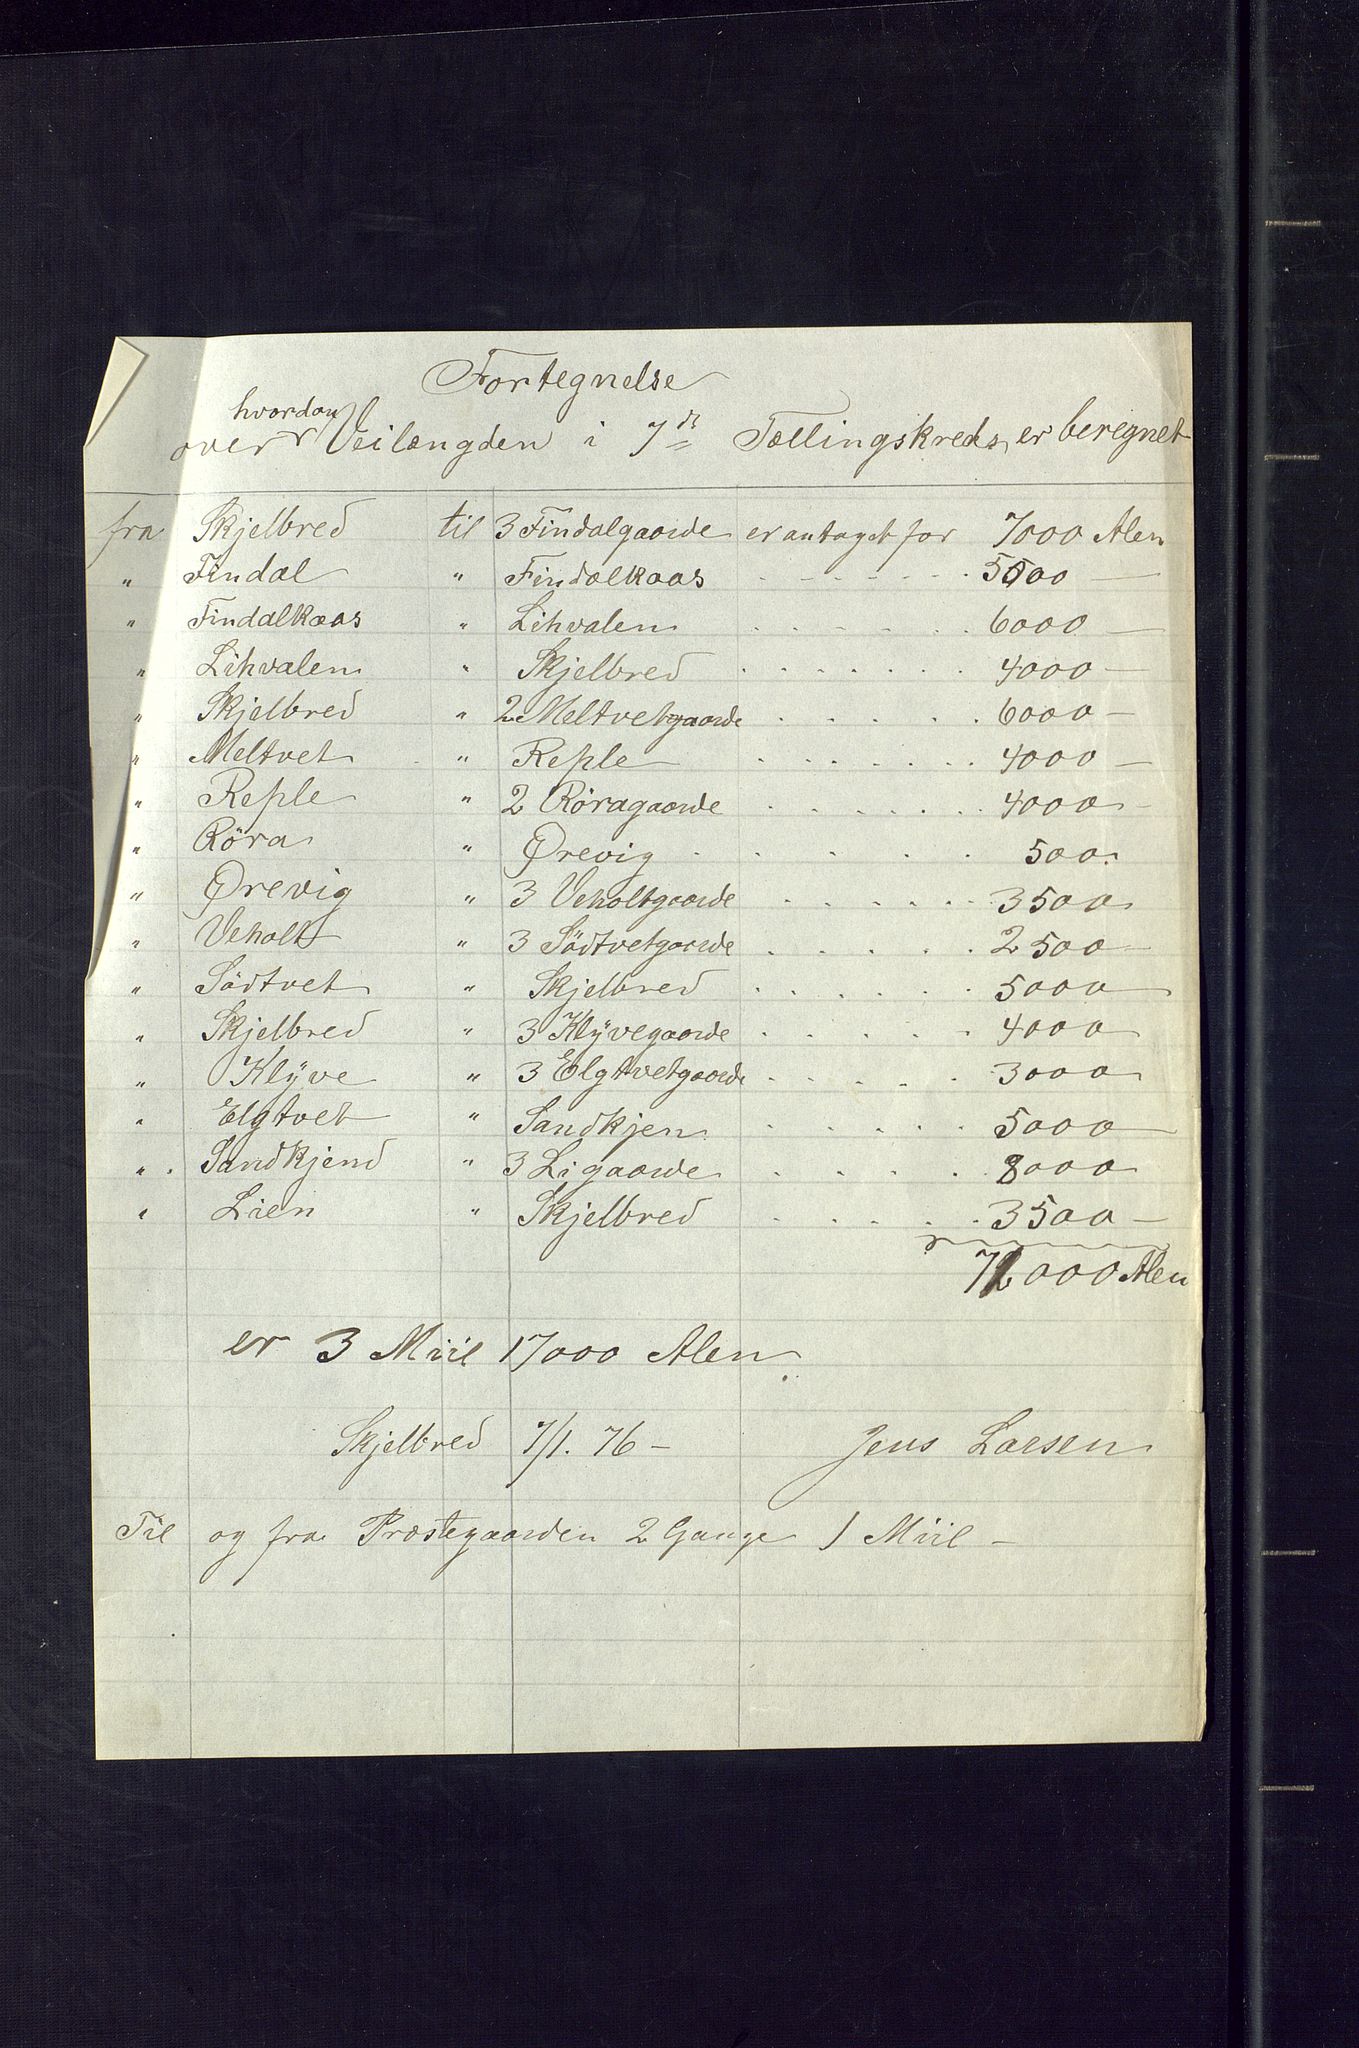 Fortegnelse
over hvordan Veilængden i 7de Tællingskreds er beregnet
fra Skjelbred til 3 Findalgaarde er antaget for 7000 Alen
" Findal " Findalkaas . . . . . . . 5500 —
" Findalkaas " Lihvalen . . . . . . 6000 —
" Lihvalen " Skjelbred . . . . . . . 4000 —
" Skjelbred " 2 Meltvetgaarde . . . . . 6000 —
" Meltvet " Reple . . . . . . . 4000 —
" Reple " 2 Röragaarde . . . . . . 4000 —
" Röra " Örevig . . . . . . 500.
" Örevig " 3 Veholtgaarde . . . . . . 3500
" Veholt " 3 Södtvetgaarde . . . . . 2500 —
" Södtvet " Skjelbred . . . . . . 5000
" Skjelbred " 3 Klÿvegaarde . . . . . 4000
" Klÿve " 3 Elgtvetgaarde . . . . . 3000
" Elgtvet " Sandkjen . . . . . 5000
" Sandkjend " 3 Ligaarde . . . . . 8000
" Lien " Skjelbred . . . . . 3500 —
72000 Alen
er 3 Miil 17000 Alen.
Skjelbred 7/1. 76 — Jens Larsen
Til og fra Præstegaarden 2 Gange 1 Miil —